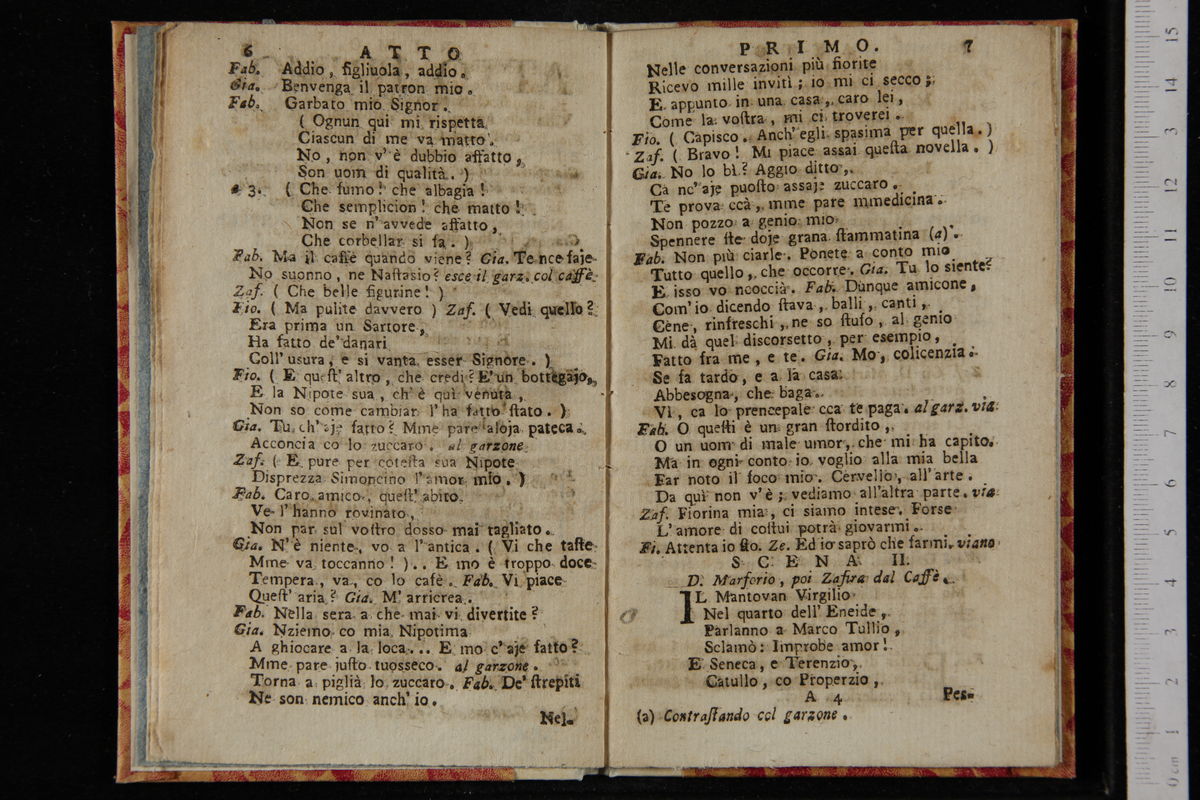 6 ATTO
Fab. Addio, figliuola, addio.
Gia. Benvenga il patron mio.
Fab. Garbato mio Signor.
( Ognun qui mi rispetta
Ciascun di me va matto.
No, non v'è dubbio affatto,
Son uom di qualità. )
a 3. ( Che fumo! che albagia!
Che semplicion! che matto!
Non se n'avvede affatto,
Che corbellar si fa. )
Fab. Ma il caffè quando viene? Gia. Te nce faje
No suonno, ne Nastasio? esce il garz. col caffè.
Zaf. ( Che belle figurine! )
Fio. ( Ma pulite davvero ) Zaf. ( Vedi quello?
Era prima un Sartore,
Ha fatto de' danari
Coll' usura, e si vanta esser Signore. )
Fio. ( E quest' altro, che credi? E' un bottegajo,
E la Nipote sua, ch' è quì venuta,
Non so come cambiar l' ha fatto stato. )
Gia. Tu ch' aje fatto? Mme pare aloja pateca.
Acconcia co lo zuccaro. al garzone
Zaf. ( E pure per cotesta sua Nipote
Disprezza Simoncino l'amor mio. )
Fab. Caro amico, quest' abito
Ve l' hanno rovinato,
Non par sul vostro dosso mai tagliato.
Gia. N' è niente, vo a l'antica. ( Vi che taste
Mme va toccanno! ).. E mo è troppo doce
Tempera, va, co lo cafè. Fab. Vi piace
Quest' aria? Gia. M' arricrea.
Fab. Nella sera a che mai vi divertite?
Gia. Nziemo co mia Nipotima
A ghiocare a la loca... E mo c' aje fatto?
Mme pare justo tuosseco. al garzone.
Torna a piglià lo zuccaro. Fab. De' strepiti
Ne son nemico anch' io.
Nel-
PRIMO. 7
Nelle conversazioni più fiorite
Ricevo mille inviti; io mi ci secco;
E appunto in una casa, caro lei,
Come la vostra, mi ci troverei.
Fio. ( Capisco. Anch' egli spasima per quella. )
Zaf. ( Bravo! Mi piace assai questa novella. )
Gia. No lo bì? Aggio ditto,
Ca nc' aje puosto assaje zuccaro.
Te prova ccà, mme pare mmedicina.
Non pozzo a genio mio
Spennere ste doje grana stammatina (a).
Fab. Non più ciarle. Ponete a conto mio
Tutto quello, che occorre. Gia. Tu lo siente?
E isso vo ncoccià. Fab. Dunque amicone,
Com' io dicendo stava, balli, canti,
Cene, rinfreschi, ne so stufo, al genio
Mi dà quel discorsetto, per esempio,
Fatto fra me, e te. Gia. Mo, colicenzia.
Se fa tardo, e a la casa
Abbesogna, che baga.
Vì, ca lo prencepale cca te paga. al garz. via
Fab. O questi è un gran stordito,
O un uom di male umor, che mi ha capito.
Ma in ogni conto io voglio alla mia bella
Far noto il foco mio. Cervello, all' arte.
Da quì non v' è; vediamo all'altra parte. via
Zaf. Fiorina mia, ci siamo intese. Forse
L' amore di costui potrà giovarmi.
Fi. Attenta io sto. Ze. Ed io saprò che farmi. viano
SCENA II.
D. Marforio, poi Zafira dal Caffè.
IL Mantovan Virgilio
Nel quarto dell' Eneide,
Parlanno a Marco Tullio,
Sclamò: Improbe amor!
E Seneca, e Terenzio,
Catullo, co Properzio,
A 4 Pes-
(a) Contrastando col garzone.
15
14
13
12
11
10
9
8
7
6
5
4
3
2
1
0 cm